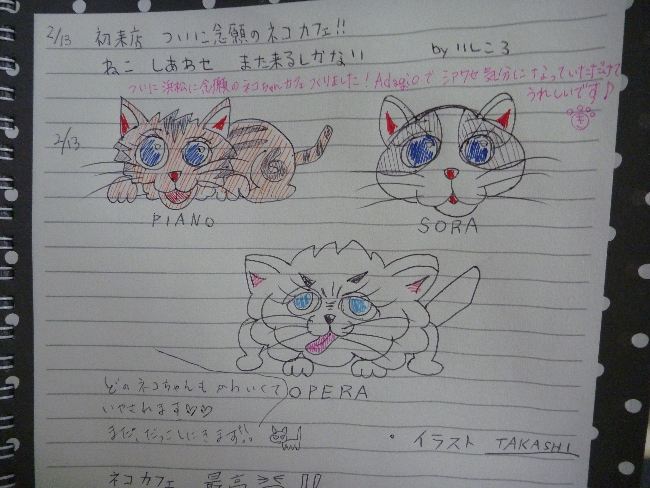 2/13 初来店 ついに念願のネコカフェ!!
ねこ しあわせ また来るしかない by いしころ
ついに浜松に念願のネコちゃんカフェつくりました！Adagioで シアワセ気分になっていただけて
うれしいです♪
2/13
PIANO
SORA
OPERA
どのネコちゃんも かわいくて
いやされます♡♡
また、だっこしにきます!!
・イラスト TAKASHI
ネコカフェ 最高 !!